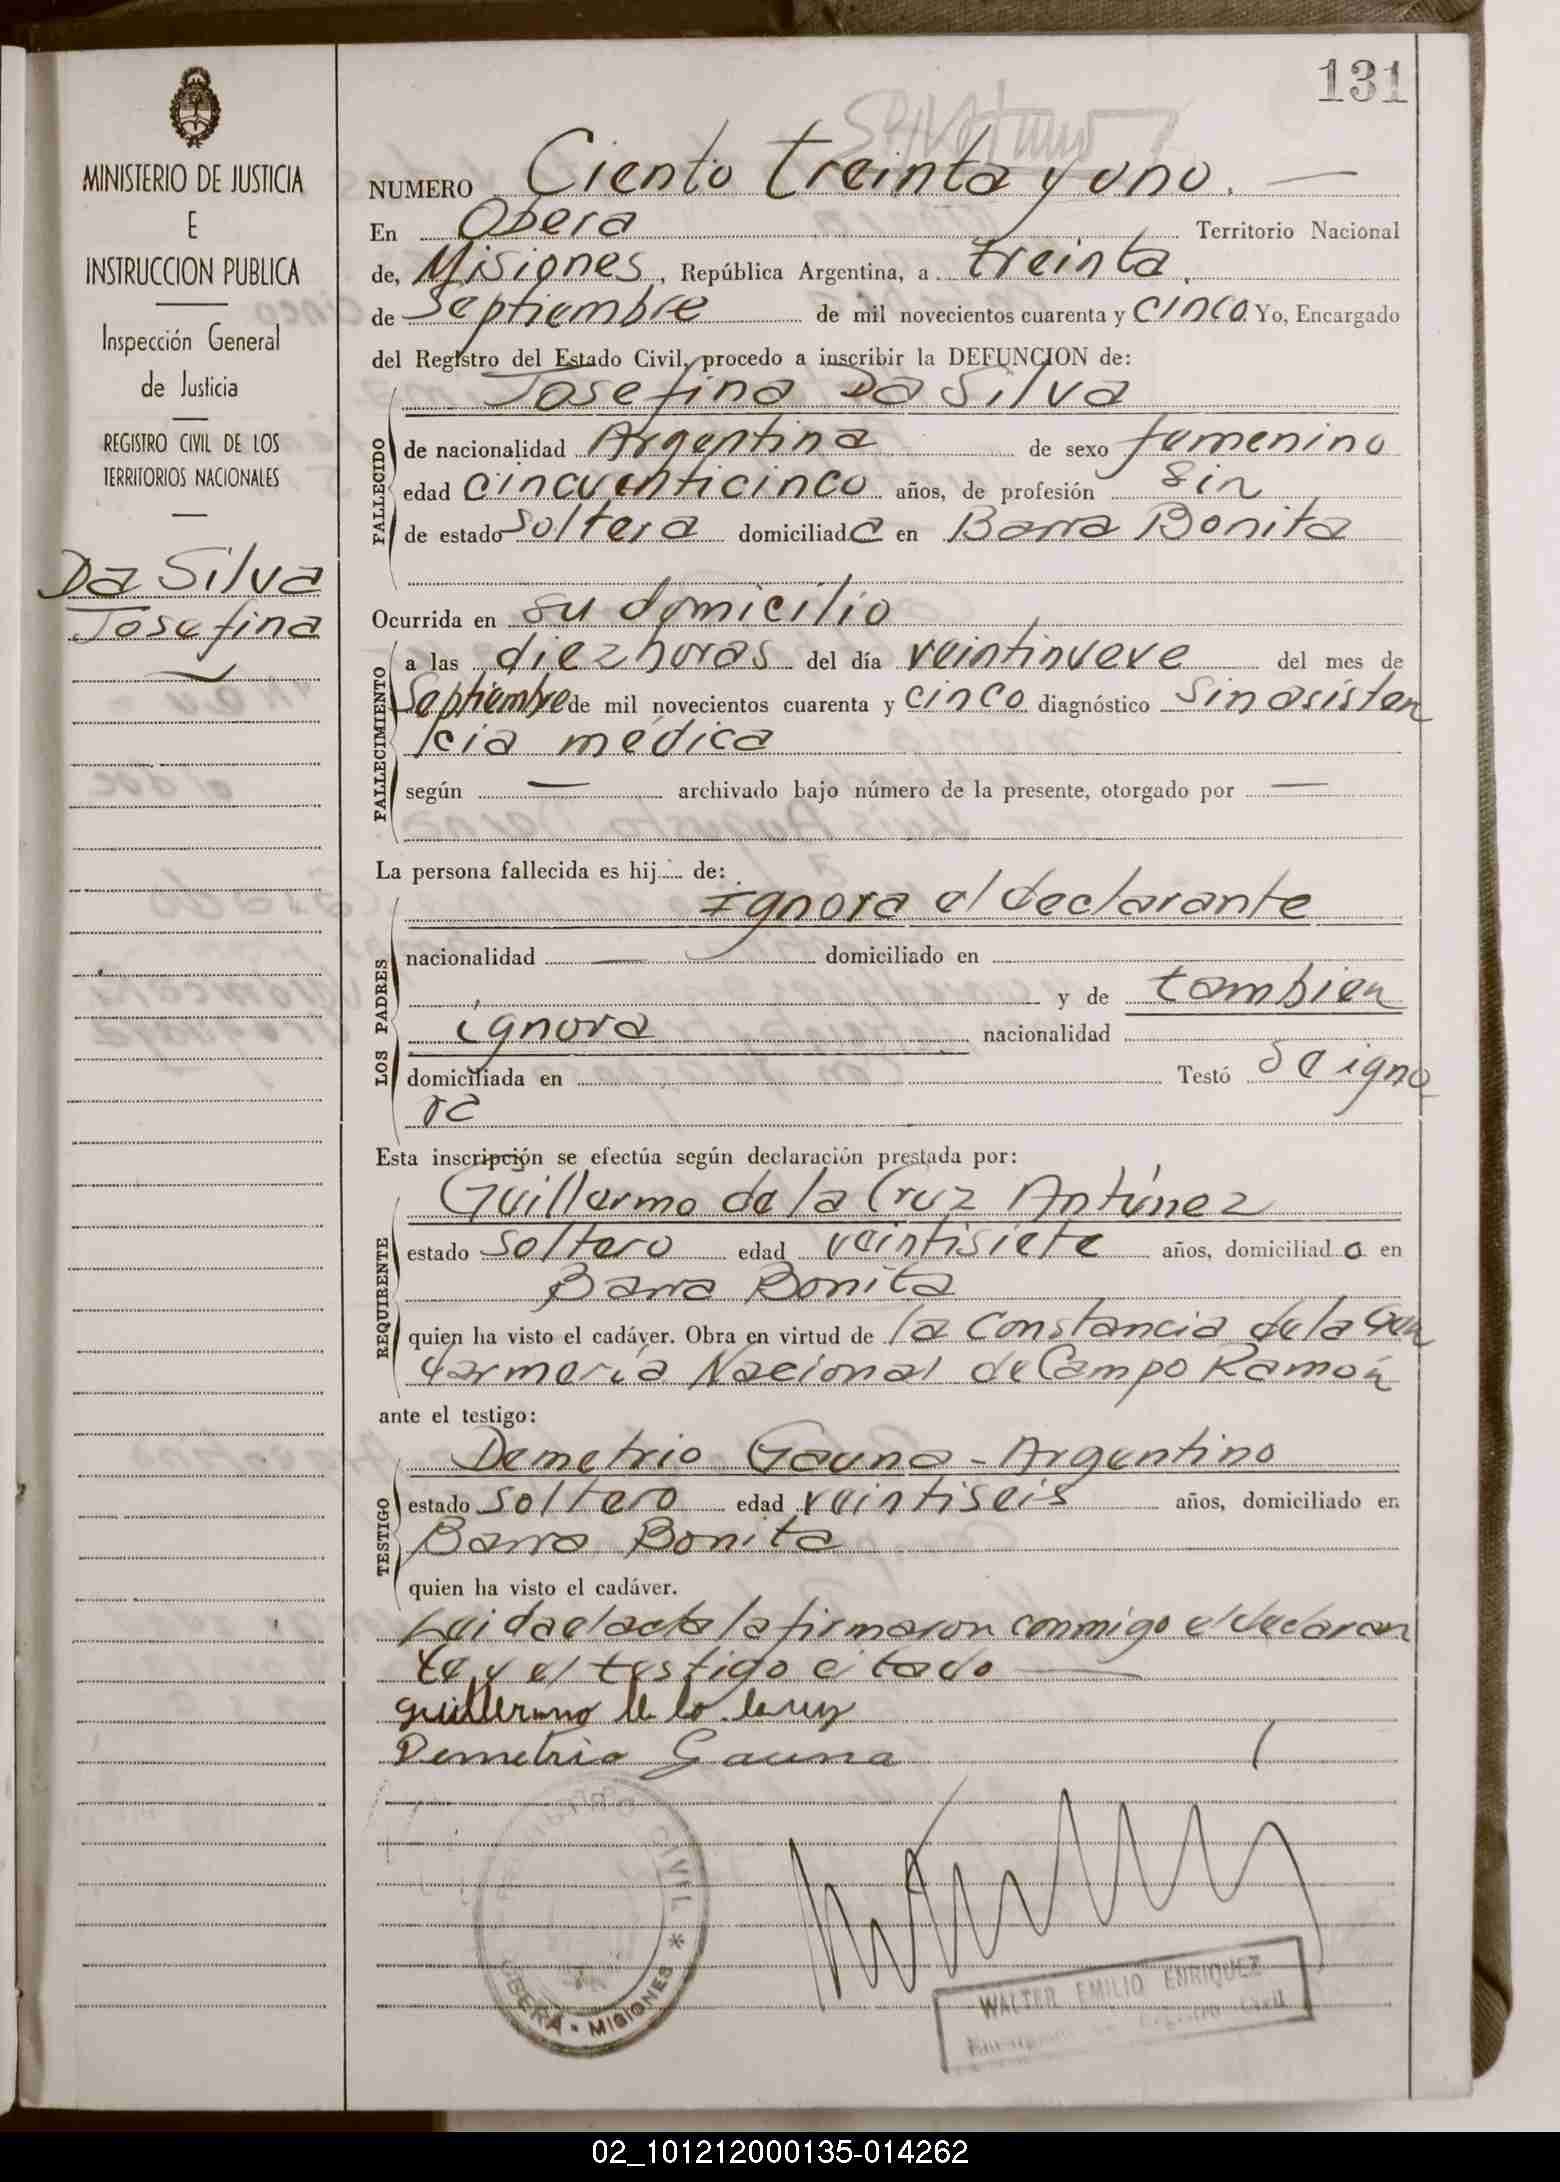 131
MINISTERIO DE JUSTICIA
E
INSTRUCCION PUBLICA
Inspección General
de Justicia
REGISTRO CIVIL DE LOS
TERRITORIOS NACIONALES
Da Silva
Josefina
NUMERO Ciento treinta y uno.
En Obera Territorio Nacional
de, Misiones, República Argentina, a treinta
de Septiembre de mil novecientos cuarenta y cinco Yo, Encargado
del Registro del Estado Civil, procedo a inscribir la DEFUNCION de:
Josefina Da Silva
FALLECIDO
de nacionalidad Argentina de sexo femenino
edad cincuenticinco años, de profesión sin
de estado soltera domiciliada en Barra Bonita
Ocurrida en su domicilio
FALLECIMIENTO
a las diez horas del día veintinueve del mes de
Septiembre de mil novecientos cuarenta y cinco diagnóstico sin asisten
cia médica
según — archivado bajo número de la presente, otorgado por —
La persona fallecida es hij de:
LOS PADRES
Ignora el declarante
nacionalidad — domiciliado en
y de tambien
ignora nacionalidad
domiciliada en Testó se igno
ra
Esta inscripción se efectúa según declaración prestada por:
REQUIRENTE
Guillermo de la Cruz Antúnez
estado soltero edad veintisiete años, domiciliado en
Barra Bonita
quien ha visto el cadáver. Obra en virtud de la Constancia de la Gen
darmeria Nacional de Campo Ramón
ante el testigo:
TESTIGO
Demetrio Gauna - Argentino
estado soltero edad veintiseis años, domiciliado en
Barra Bonita
quien ha visto el cadáver.
Leida el acta la firmaron conmigo el declaran
te y el testigo citado
guillermo de la cruz
Demetrio Gauna
CIVIL * OBERA • MISIONES *
WALTER EMILIO ENRIQUEZ
Registro Civil
02_101212000135-014262